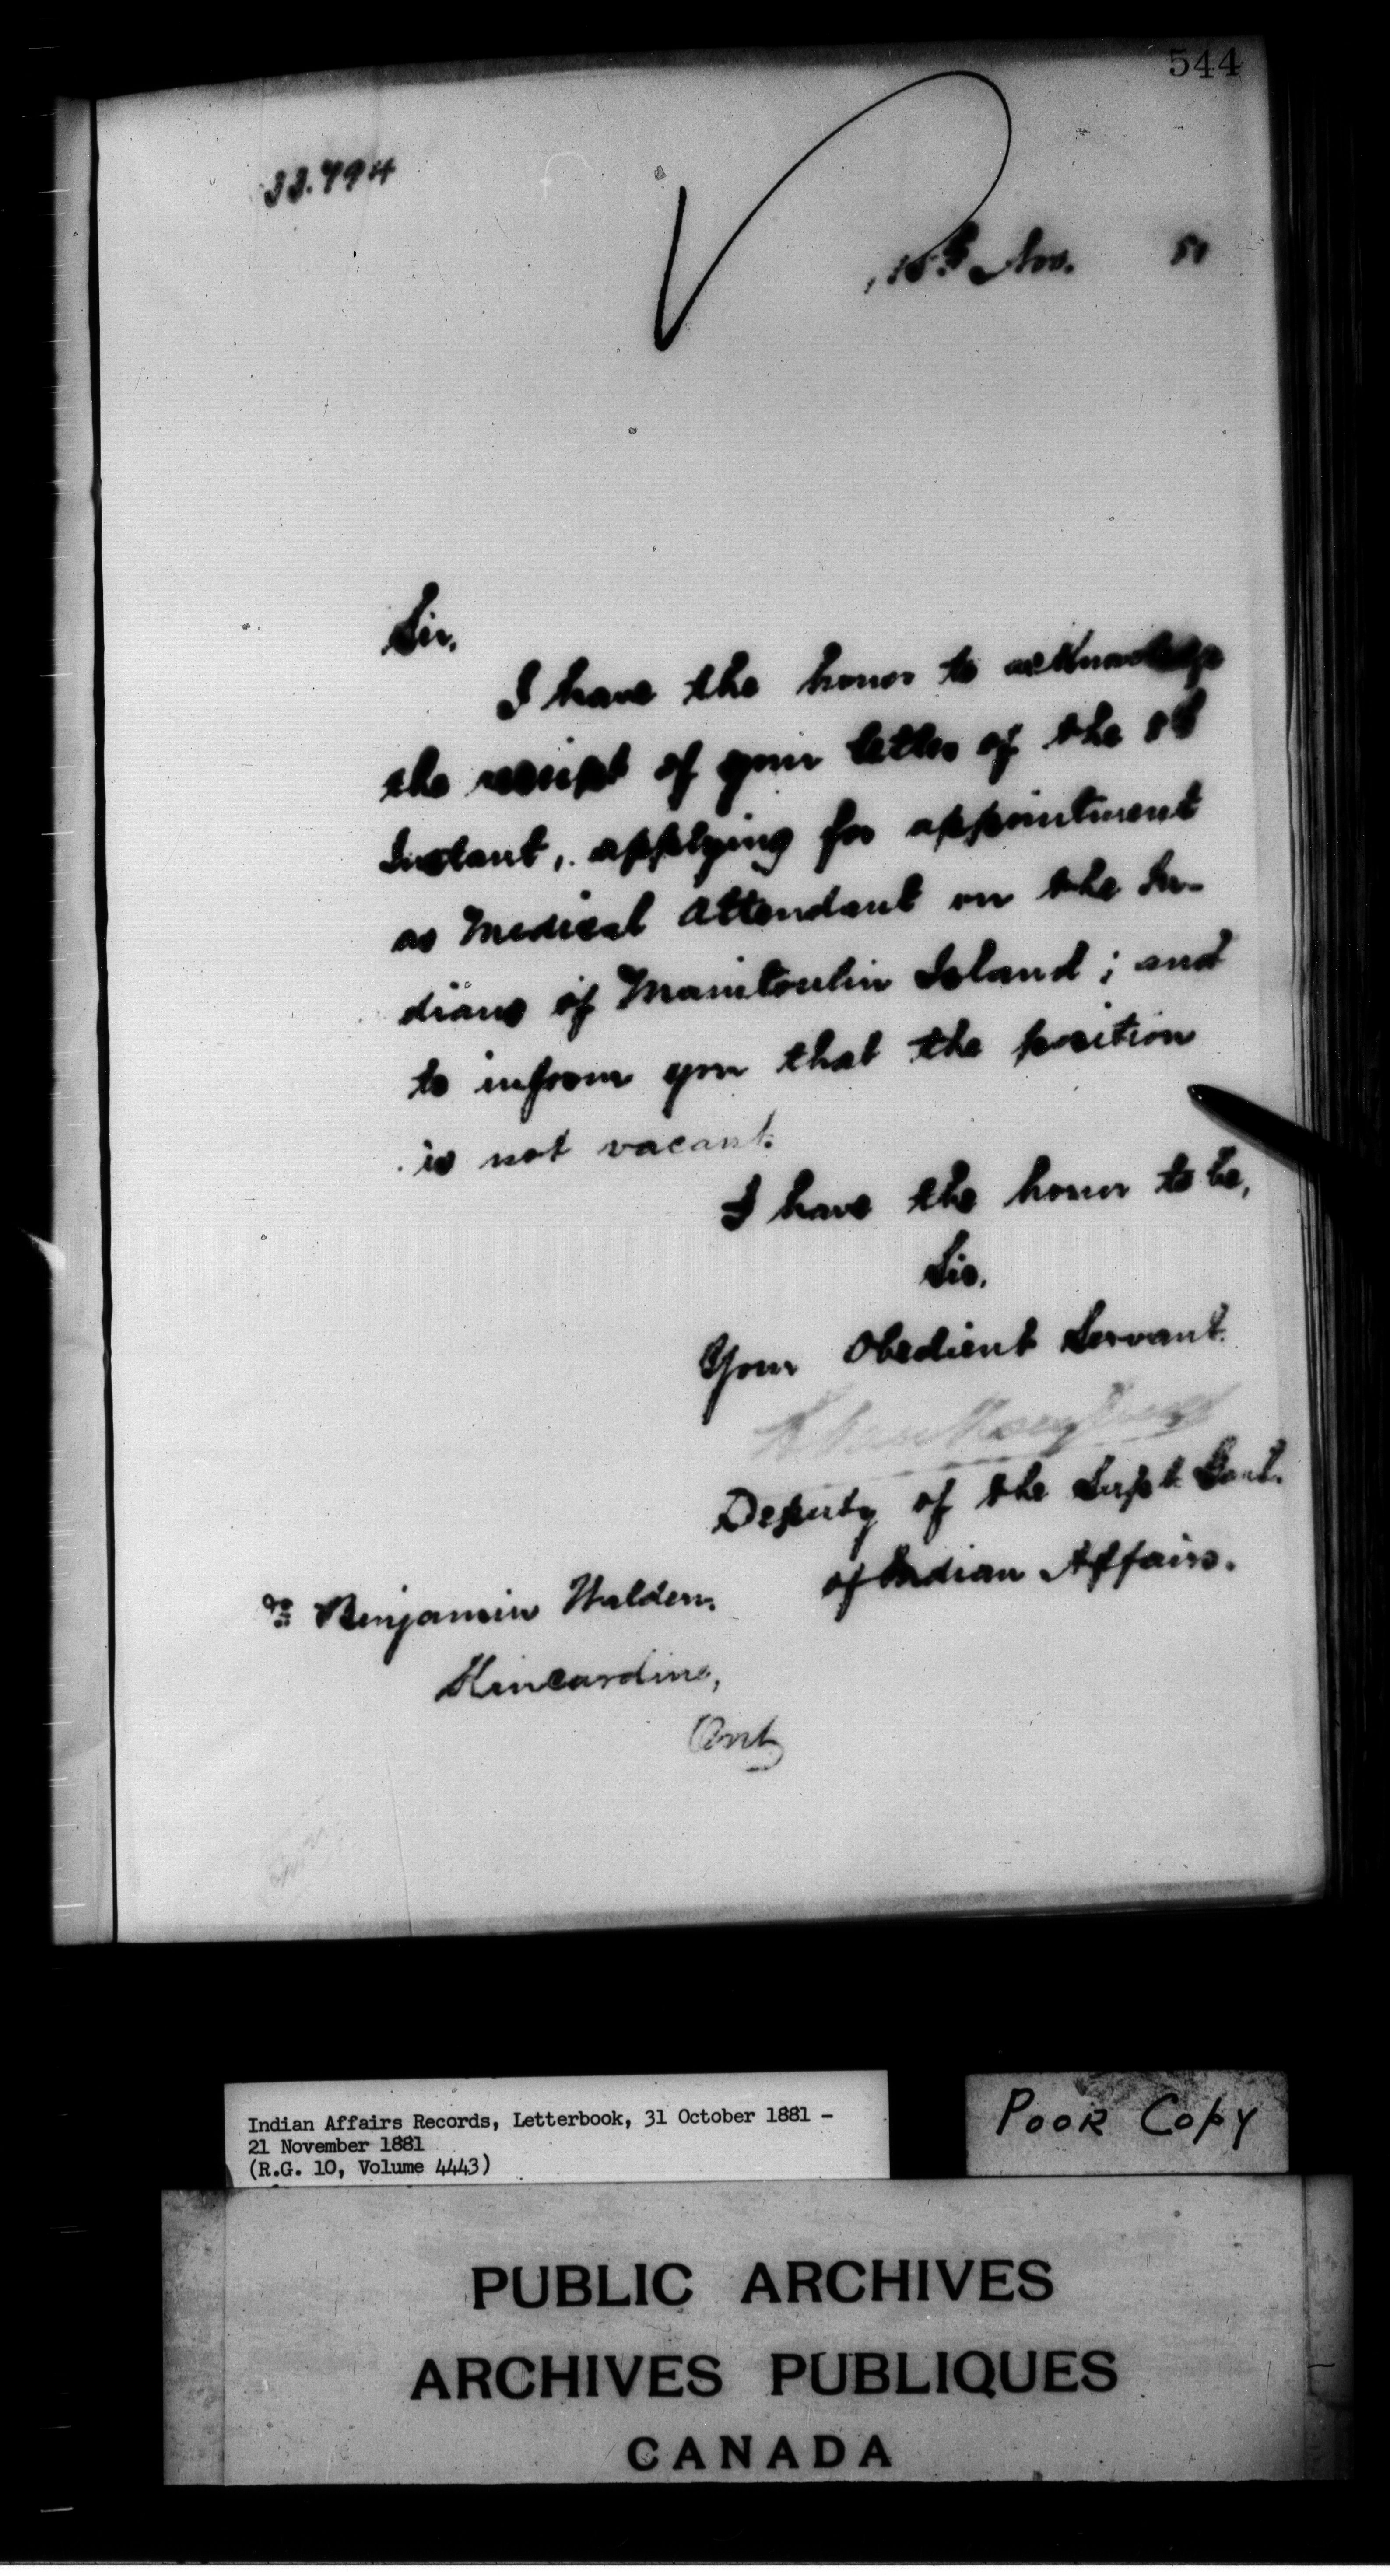 544
33.794
15th Nov. 81
Sir,
I have the honor to acknowledge
the receipt of your letter of the
Instant, applying for appointment
as Medical Attendant on the In-
dians of Manitoulin Island; and
to inform you that the position
is not vacant.
I have the honor to be,
Sir,
Your Obedient Servant.
Deputy of the Supt. Genl.
of Indian Affairs.
Benjamin Walden.
Kincardine,
Ont
Indian Affairs Records, Letterbook, 31 October 1881 -
21 November 1881
(R.G. 10, Volume 4443)
POOR COPY
PUBLIC ARCHIVES
ARCHIVES PUBLIQUES
CANADA